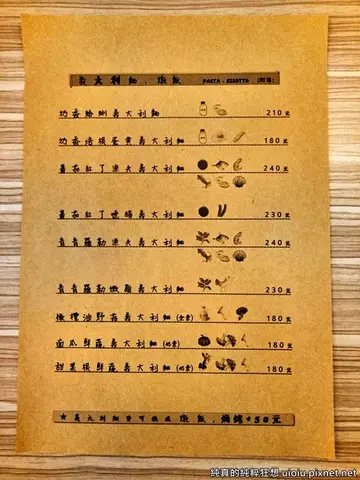 義大利麵．燉飯 PASTA．RISOTTO
奶香蛤蜊義大利麵 210元
奶香培根蛋黃義大利麵 180元
蕃茄紅丁漁夫義大利麵 240元
蕃茄紅丁臘腸義大利麵 230元
青青羅勒漁夫義大利麵 240元
青青羅勒嫩雞義大利麵 230元
橄欖油野菇義大利麵(全素) 180元
南瓜鮮蔬義大利麵(奶素) 180元
甜菜根鮮蔬義大利麵(奶素) 180元
★義大利麵皆可換成燉飯，焗烤+50元
純真的純粹狂想 uioiu.pixnet.net